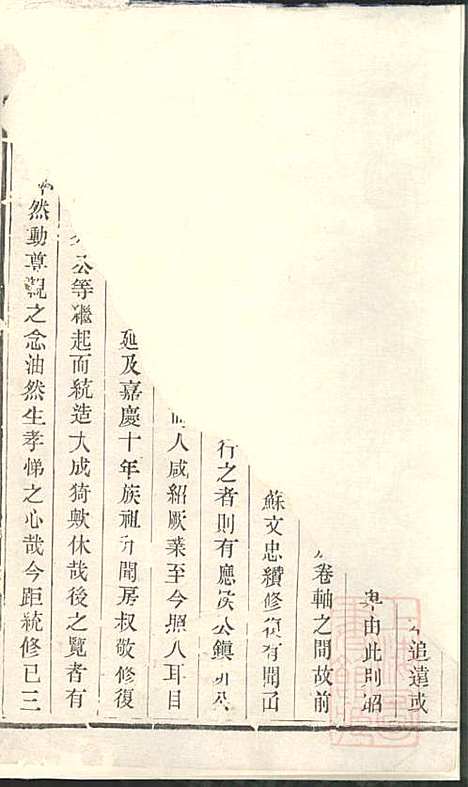 追遠或
由此則昭
卷軸之間故前
蘇文忠纘修復有聞而
行之者則有應侯公鎮
人咸紹厥業至今照人耳目
延及嘉慶十年族祖升聞房叔敬修復
公等繼起而統造大成猗歟休哉後之覽者有
然動尊親之念油然生孝悌之心哉今距統修已三